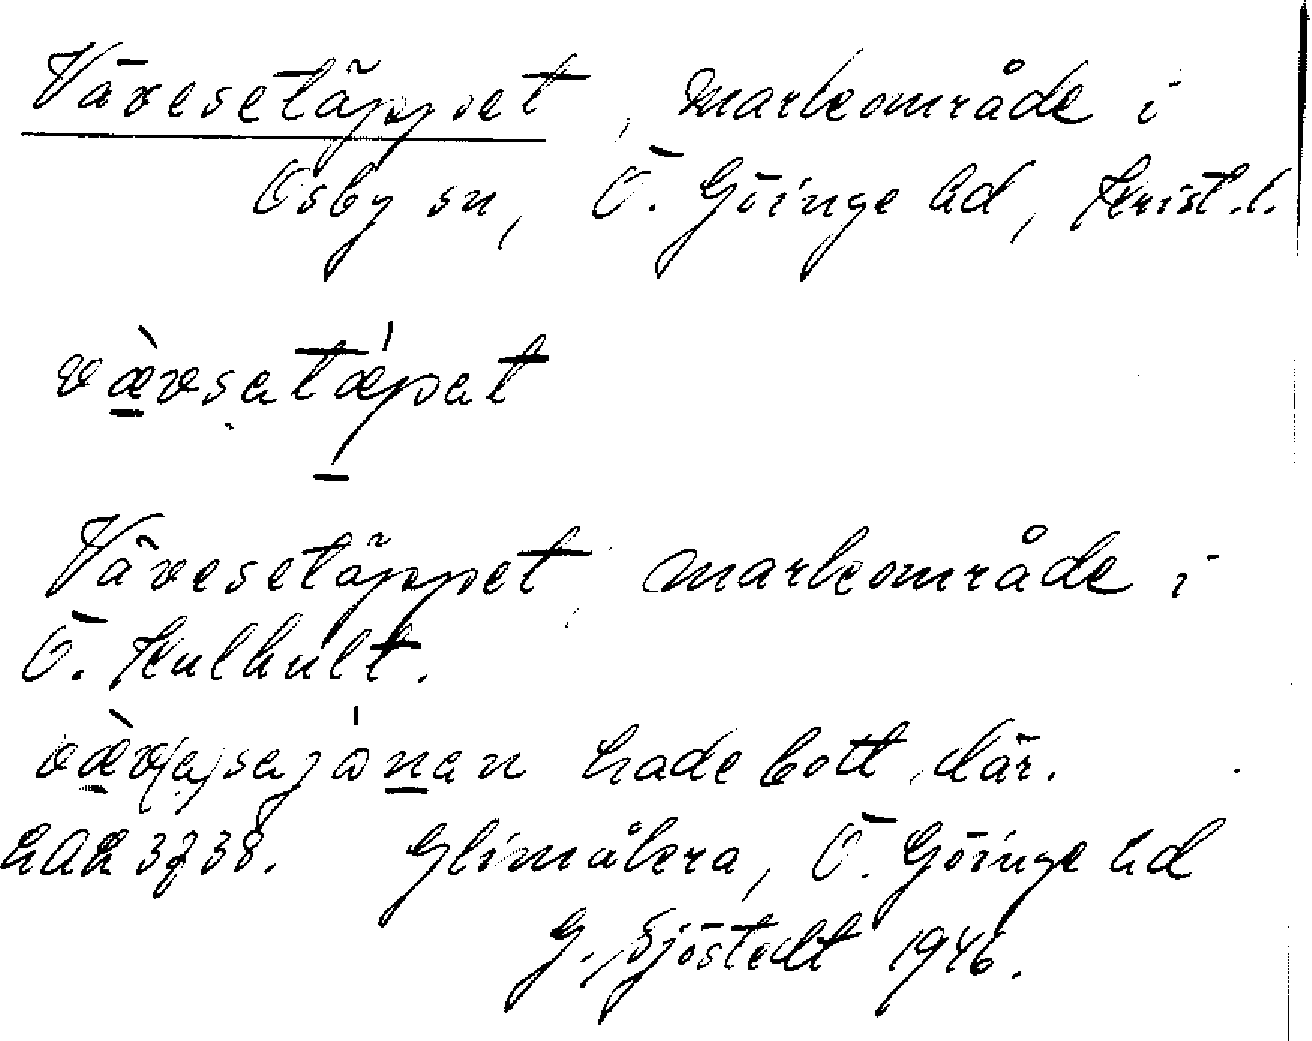 Vävesetäppet, markområde i
Osby sn, Ö. Göinge hd, Krist. l.
vævsatæpat
Vävesetäppet, markområde i
Ö. Hulhult.
hade bott där.
3738. Glimåkra, Ö. Göinge hd
G. Sjöstedt 1946.